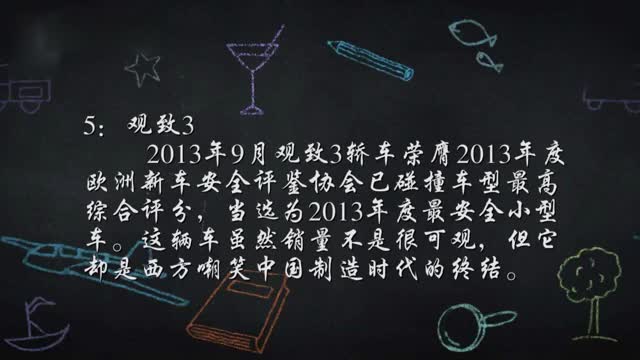 5：观致3
2013年9月观致3轿车荣膺2013年度
欧洲新车安全评鉴协会已碰撞车型最高
综合评分，当选为2013年度最安全小型
车。这辆车虽然销量不是很可观，但它
却是西方嘲笑中国制造时代的终结。